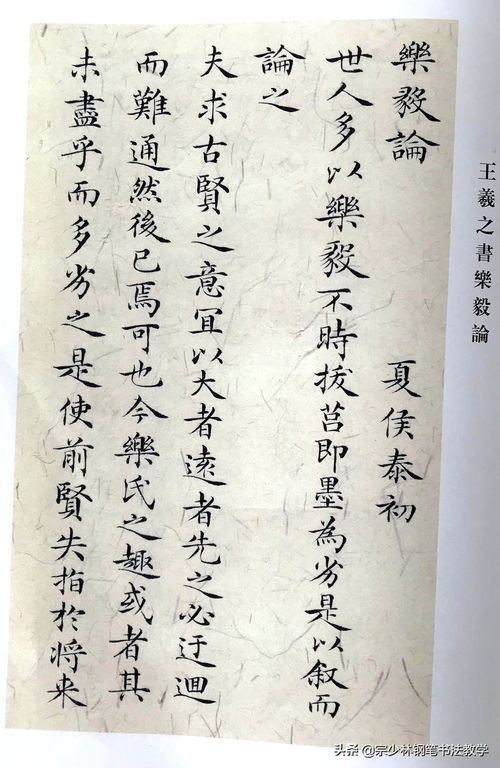 王羲之書樂毅論
樂毅論 夏侯泰初
世人多以樂毅不時拔莒即墨為劣是以叙而
論之
夫求古賢之意宜以大者遠者先之必迂迴
而難通然後已焉可也今樂氏之趣或者其
未盡乎而多劣之是使前賢失指於将来
头条 @宗少林钢笔书法教学